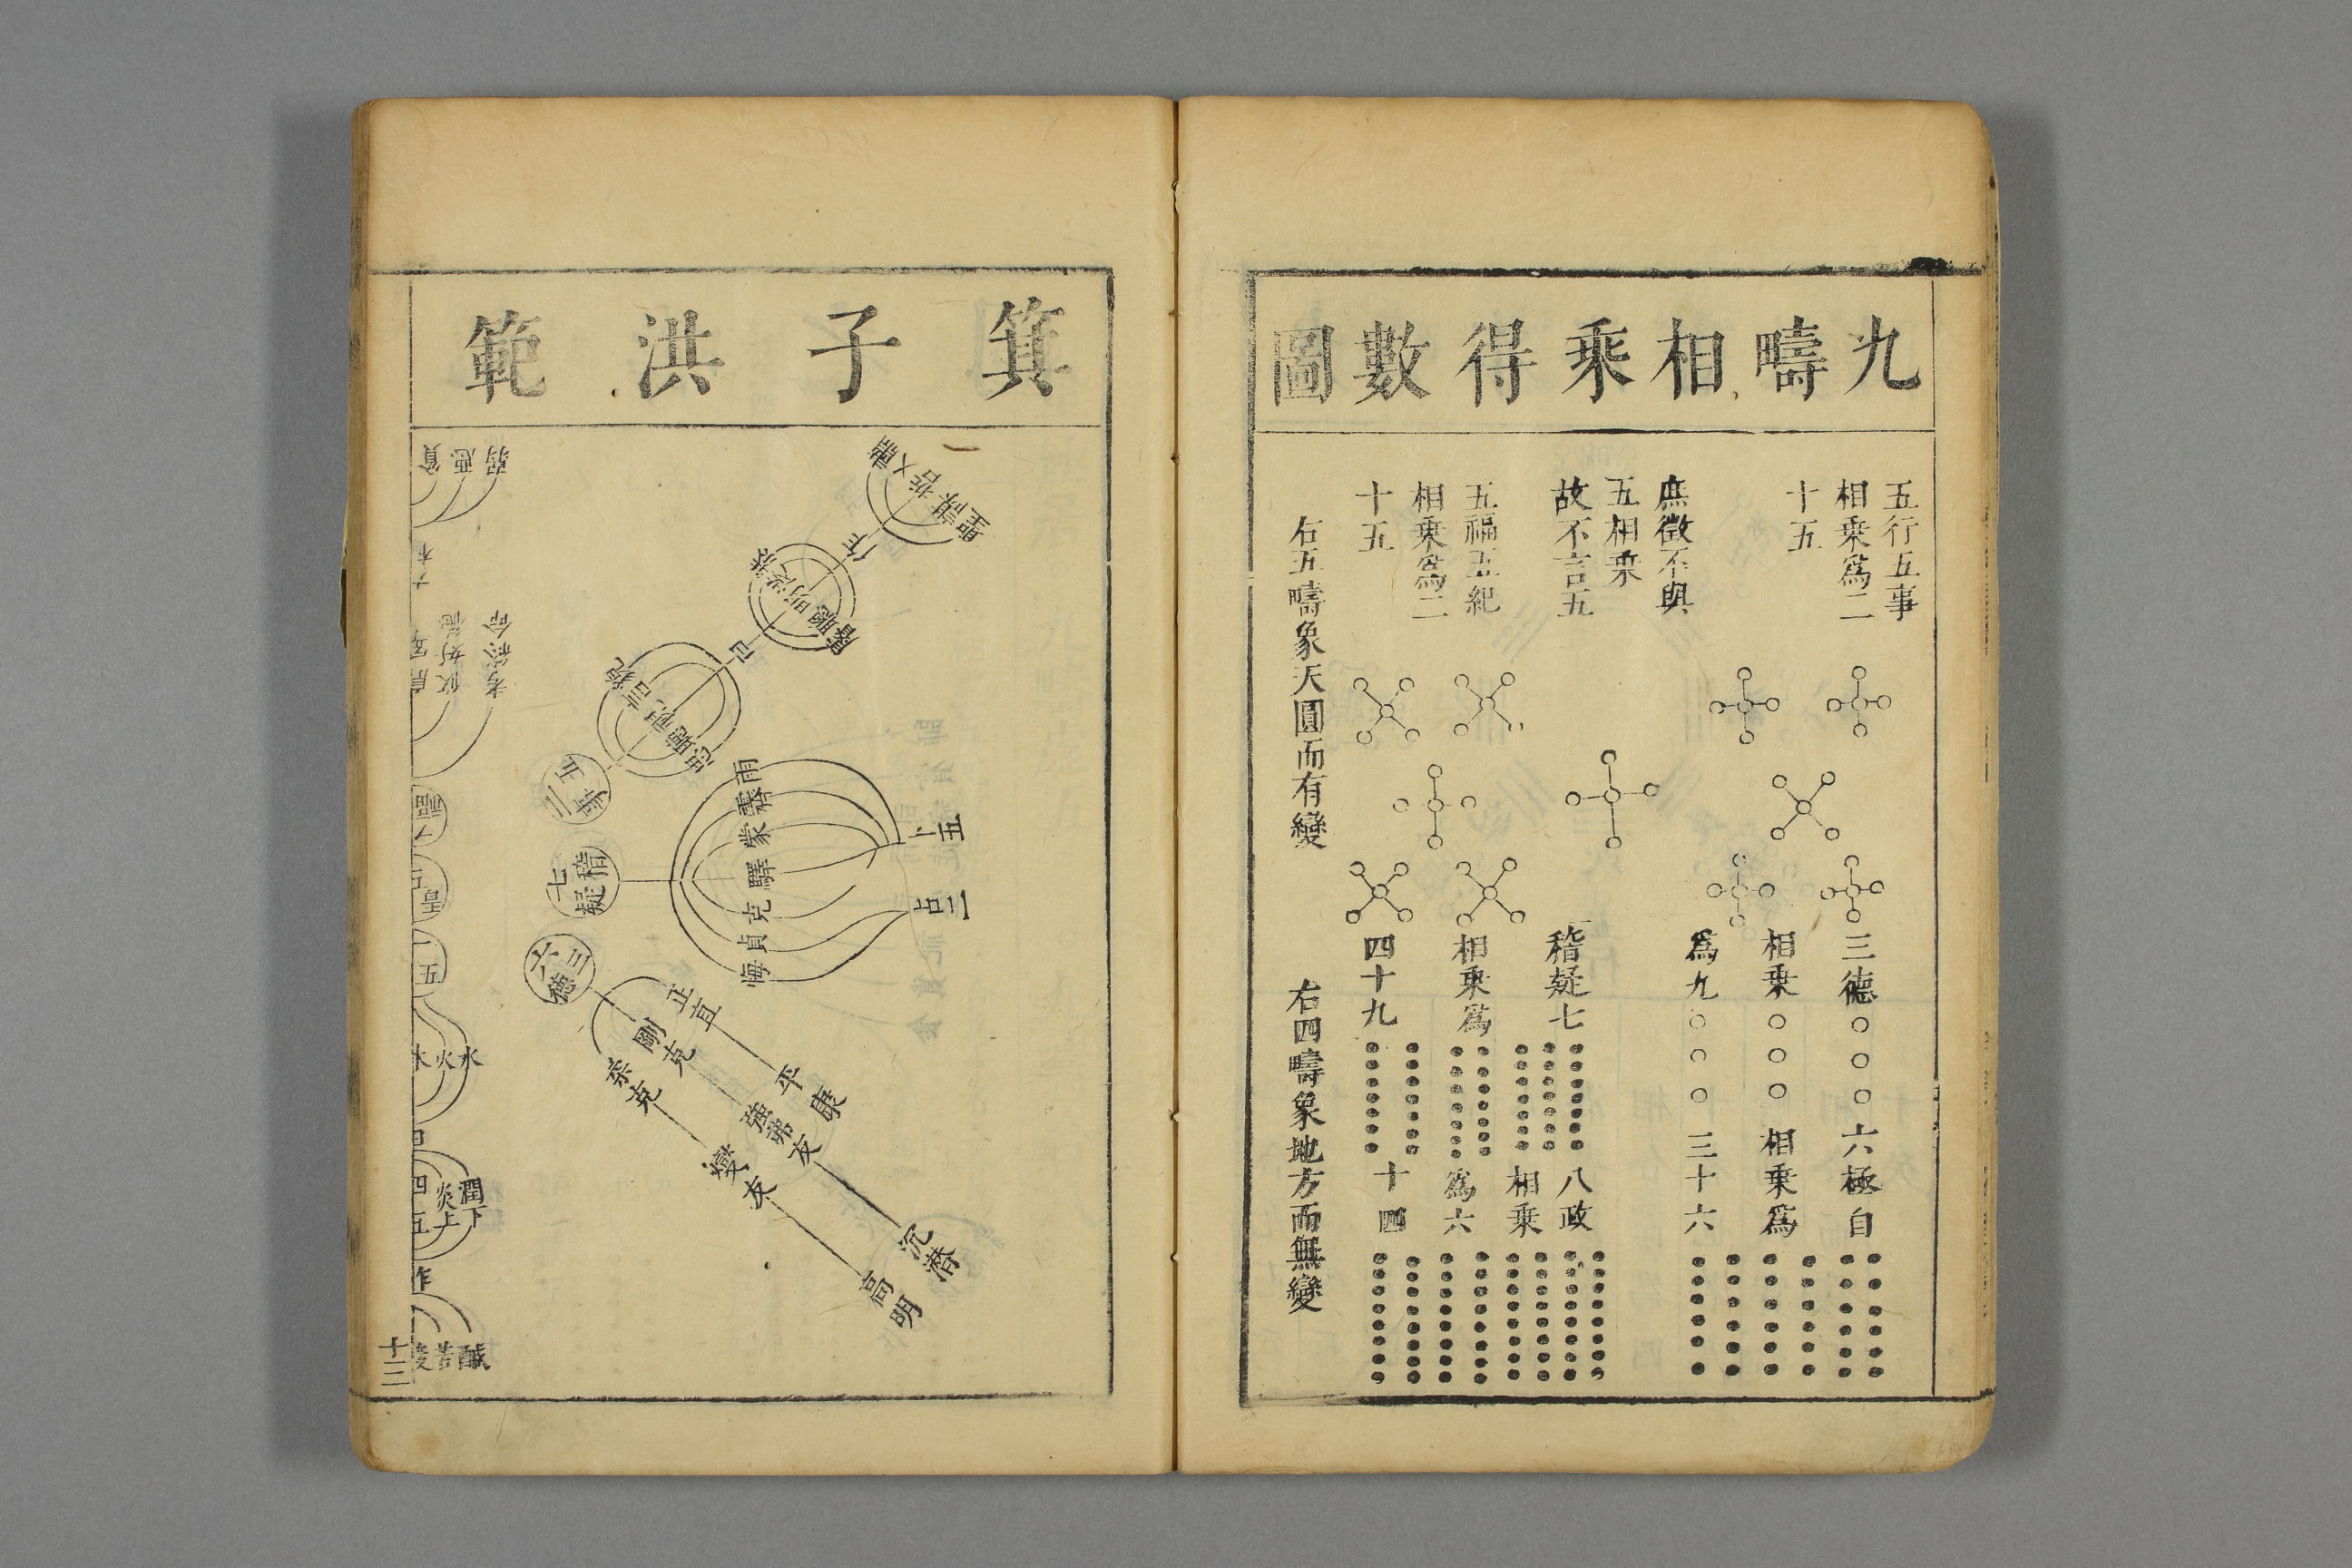 九疇相乘得數圖
五行五事
相乘爲二
十五
庶徵不與
五相乘
故不言五
五福五紀
相乘爲二
十五
右五疇象天圓而有變
三德
相乘
爲九
六極自
相乘爲
三十六
稽疑七
相乘爲
四十九
八政
相乘
爲六
十四
右四疇象地方而無變
箕子洪範
聖謀哲乂肅
作
睿聰明從恭
曰
思聽視言貌
二五事
雨霽蒙驛克貞悔
卜五
占二
七稽疑
六三德
正直
剛克
柔克
平康
彊弗友
燮友
沉潛
高明
弱
惡
貧
考終命
攸好德
水
火
木
潤下
炎上
作
鹹
苦
酸
十三